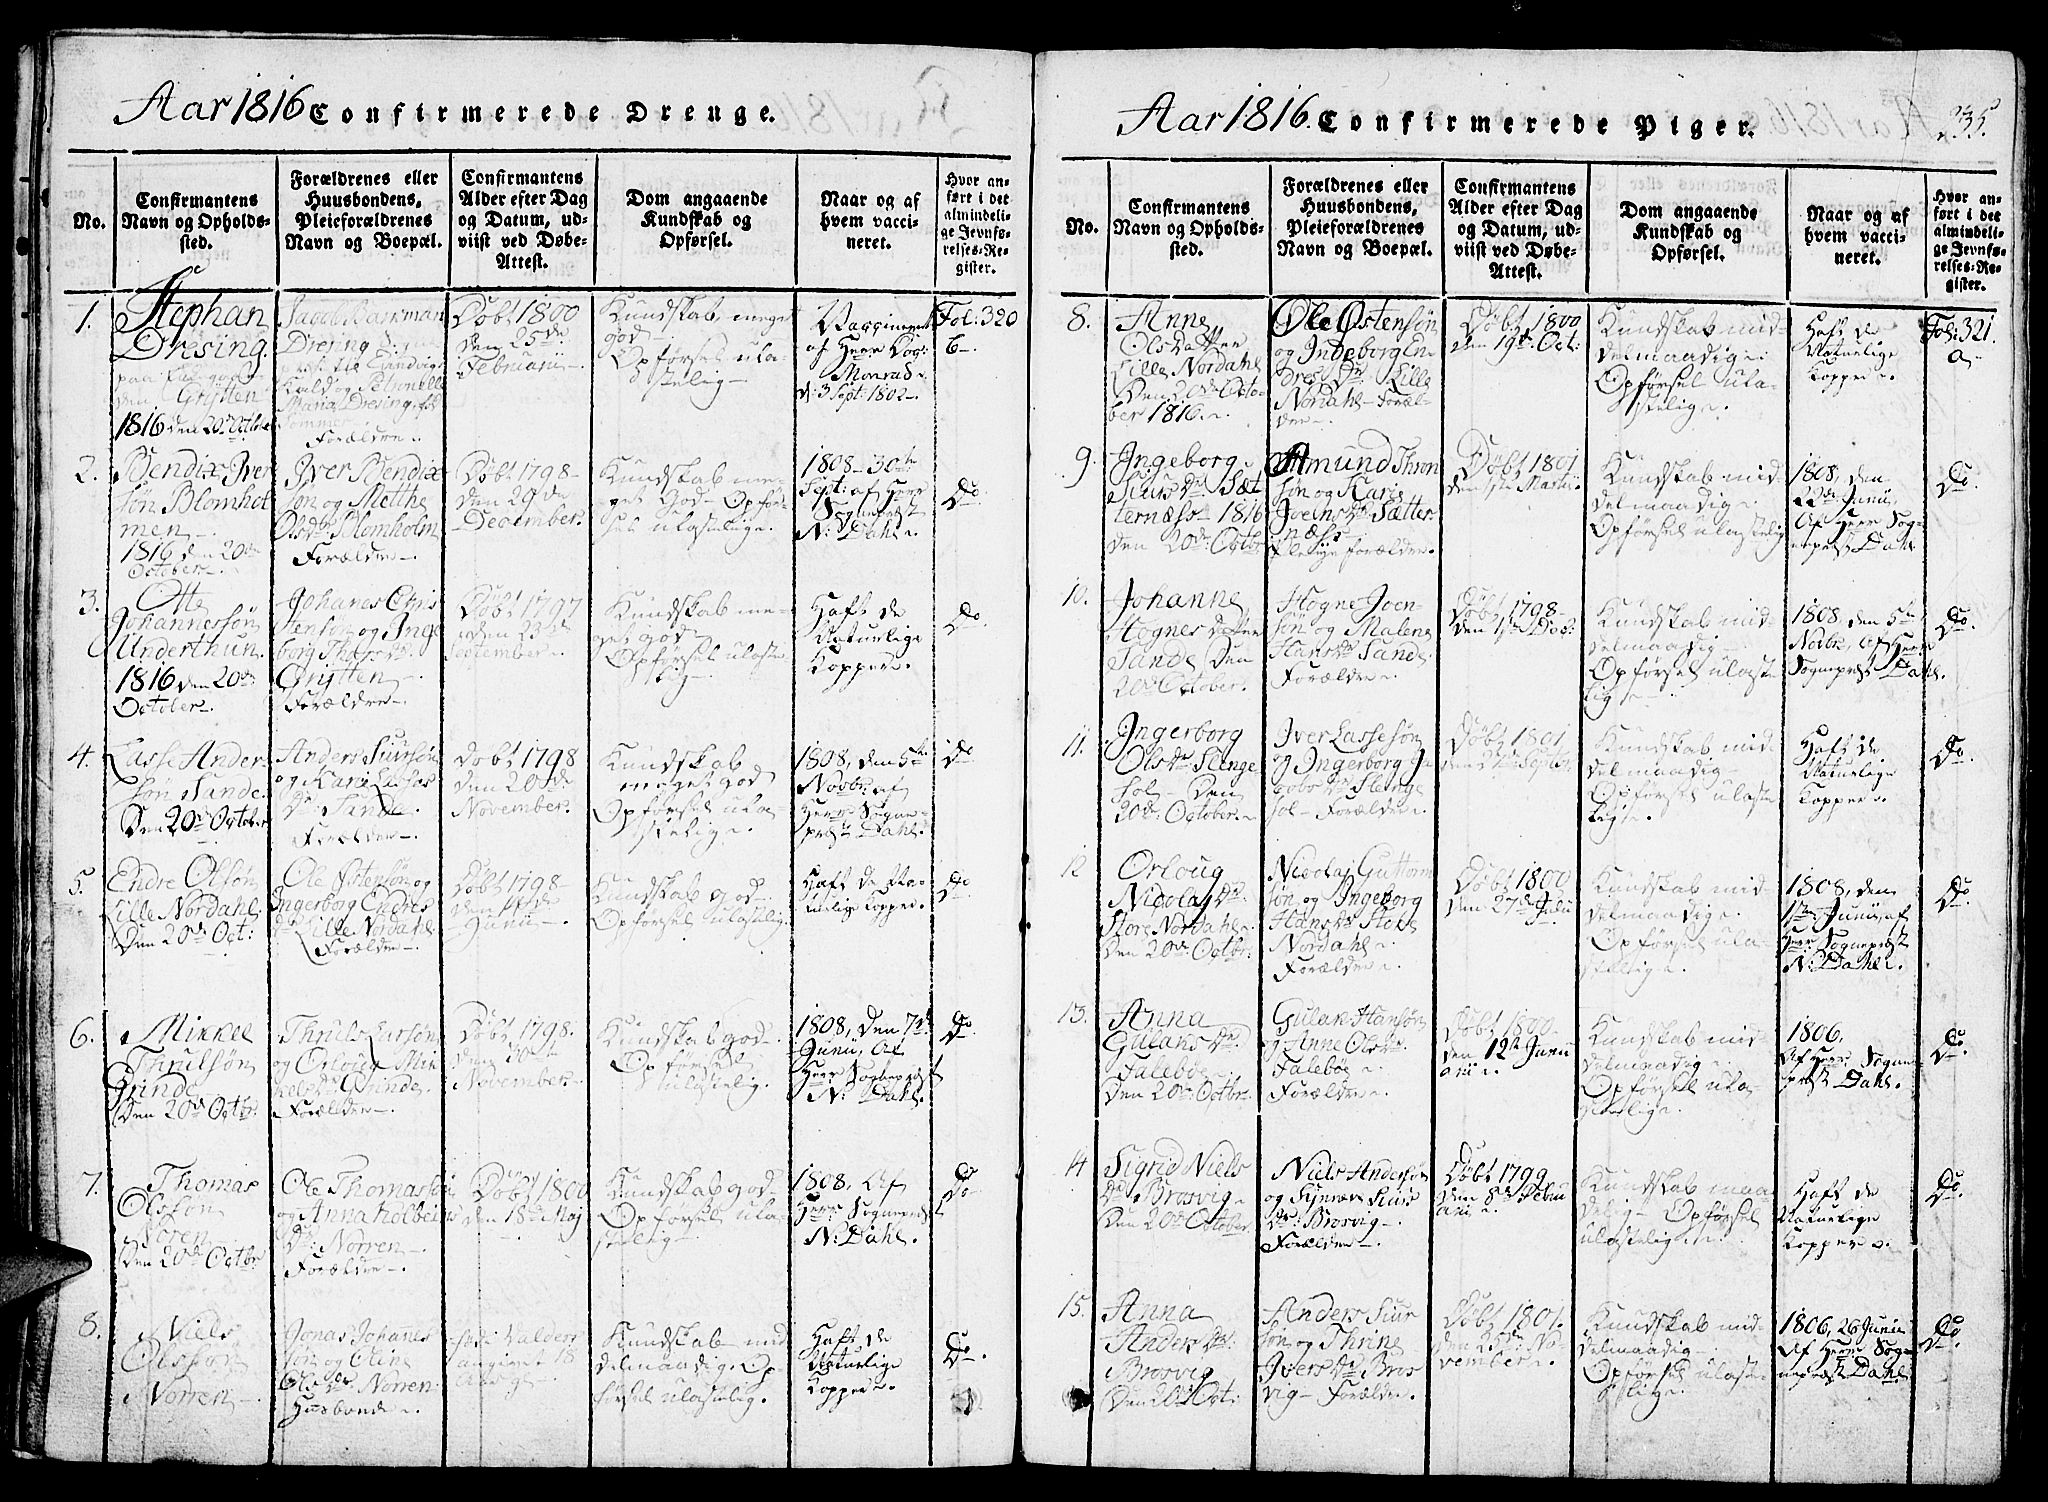 Aar 1816 Confirmerede Drenge.
No.
Confirmantens
Navn og Opholds-
sted.
Forældrenes eller
Huusbondens,
Pleieforældrenes
Navn og Boepæl.
Confirmantens
Alder efter Dag
og Datum, ud-
viist ved Døbe-
Attest.
Dom angaaende
Kundskab og
Opførsel.
Naar og af
hvem vacci-
neret.
Hvor an-
ført i det
almindeli-
ge Jevnfø-
relses-Re-
gister.
1.
Stephan
Dresing.
1816 den 20de October
Dresing
Maria Dresing
Forældre
Døbt 1800
den 25de
Februarii
Kundskab, meget
god
Opførsel ula-
stelig
af Herr
Monrad
d: 3 Sept: 1802
Fol: 320
b
2.
Bendix Iver
søn Blomhol
men
1816 den 20de
October
Iver Bendix
søn og Metthe
Olsdr Blomholm
Forældre
Døbt 1798
den 29de
December.
Kundskab me-
get God Opfør-
sel ulastelig.
1808 30te
Sept: af Herr
Sogneprest
N: Dahl
Do
3.
Otte
Johannessøn
Underthun.
1816 den 20de
October
Johanes Chris
tensøn og Inge
borg
Grytten
Forældre
Døbt 1797
den 23de
September
Kundskab me-
get god
Opførsel ulaste
lig
Haft de
Naturlige
Kopper
Do.
4.
Lasse Anders
søn Sande.
Den 20de October
Anders Siursøn
og Kari Lasses
Dr Sande
Forældre
Døbt 1798
den 20de
November.
Kundskab
meget god
Opførsel ula-
stelig.
1808, den 5te
Novbr. af
Herr Sogne-
prest Dahl.
Do
5.
Endre Olsøn
Lille Nordahl.
Den 20de Oct:
Ole Østensøn og
Ingerborg Endres
dr Lille Nordahl
Forældre
Døbt 1798
den
Junii
Kundskab god
Opførsel ulastelig.
Haft de Na-
turlige Kopper
Do
6.
Mikkel
Thrulsøn
Grinde
Den 20de Octbr:
Thruls Larsøn
og Orloug Mik
kels Dr Grinde
Forældre
Døbt 1798.
den 30te
November
Kundskab god
Opførsel
ulastelig.
1808, den 7de
Junii, Af
Herr Sogneprest
N: Dahl.
Do
7.
Thomas
Olsøn
Noren
Den 20de Octbr
Ole Thomassøn
og Anna Kolbeins
Dr: Norren
Forældre
Døbt 1800
den 18de Maj
Kundskab god
Opførsel ula-
stelig
1808, Af
Herr Sogneprest
N: Dahl.
Do
8.
Niels
Olssøn
Norren
Jonas Johanes
søn og Elin
Ols dr Norren
Husbonde
angivet 18
Kundskab mid
delmaadig. Op
førsel ulastelig.
Haft de
Naturlige
Kopper
Do.
Aar 1816. Confirmerede Piger.
235.
No.
Confirmantens
Navn og Opholds-
sted.
Forældrenes eller
Huusbondens,
Pleieforældrenes
Navn og Boepæl.
Confirmantens
Alder efter Dag
og Datum, ud-
viist ved Døbe-
Attest.
Dom angaaende
Kundskab og
Opførsel.
Naar og af
hvem vacci-
neret.
Hvor an-
ført i det
almindeli-
ge Jevnfø-
relses-Re-
gister.
8.
Anne
Olsdatter
Lille Nordahl
Den 20de Octo
ber 1816.
Ole Østensøn
og Indeborg En-
dres Dr Lille
Nordahl Foræl-
dre
Døbt 1800
den 19de Oct:
Kundskab mid-
delmaadig
Opførsel ula-
stelig.
Haft de
Naturlige
Kopper
Fol: 321.
a
9.
Ingeborg
Siurs Dr Sæt
ternæss 1816
den 20de Octbr
Amund Thron
søn og Karie
Joensdr Sætter
næss
Plejeforældre.
Døbt 1801
den 1ste Martii.
Kundskab mid-
delmaadig
Opførsel ulastelig
1808, den
22de Junii,
Af Herr Sog-
neprest Dahl
Do
10.
Johanne
Hognes datter
Sande Den
20de October.
Hogne Joen
søn og Malene
Hansdr Sande
Forældre
Døbt 1798
den 1ste
Kundskab mid-
delmaadig
Opførsel ulaste
lig
1808, den 5te
Novbr, Af Herr
Sogneprest Dahl.
Do.
11.
Ingerborg
Olsdr Slinge
sol Den
20de October.
Iver Lassesøn
og Ingerborg Ja
cobs dr Slinge
sol Forældre
Døbt 1801
den 27de Septbr.
Kundskab mid
delmaadig
Opførsel ulaste
lig
Haft de
Naturlige
Kopper
Do.
12
Orloug
Nicolaj Dr
Store Nordahl
Den 20de Octbr.
Nicolaj Guttorm
søn og Ingeborg
Hansdr Store
Nordahl
Forældre
Døbt 1800
den 27de Julii
Kundskab mid-
delmaadig.
Opførsel ula-
stelig
1808, den
1ste Junii, af
Herr Sogneprest
N: Dahl
Do.
13.
Anna
Gulaks Dr
Faleboe
Den 20de Octbr
Gulak Hansøn
og Anne Olsdr
Faleboe
Forældre
Døbt 1800
den 12te Janu
arii
Kundskab mid
delmaadig
Opførsel ula
stelig.
1806.
Af Herr Sogne
prest Dahl
Do.
14
Sigrid Niels
Dr Brosvig
Den 20de October.
Niels Andersøn
og Synneve Siurs
Dr: Brosvig
Forældre
Døbt 1799
den 8de Febru
arii
Kundskab maa
delig Opførsel
ulastelig
Haft de
Naturlige
Kopper
Do.
15.
Anna
Anders Dr
Brosvig
Den 20de Oct:
Anders Siur
søn og Thrine
Ivers Dr Bros
vig Forældre
Døbt 1801.
den 25de No
vember
Kundskab mid-
delmaadig
Opførsel ulaste
lig
1806, 26 Junii
Af Herr Sog-
neprest Dahl
Do